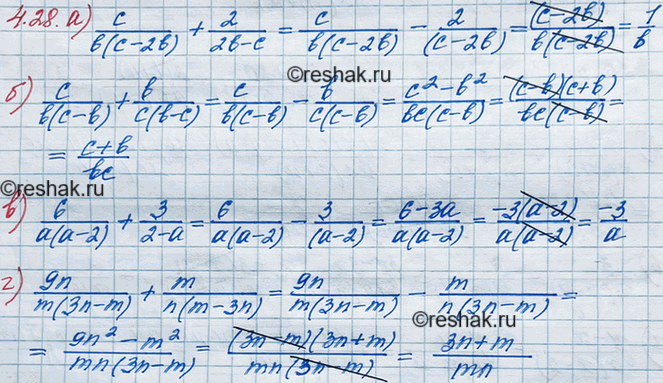 4.28. а) c/(b(c-2b)) + 2/(2b-c) = c/(b(c-2b)) - 2/(c-2b) = (c-2b)/(b(c-2b)) = 1/b
©reshak.ru
б) c/(b(c-b)) + b/(c(b-c)) = c/(b(c-b)) - b/(c(c-b)) = (c²-b²)/(bc(c-b)) = (c-b)(c+b)/(bc(c-b)) =
= (c+b)/(bc)
©reshak.ru
в) 6/(a(a-2)) + 3/(2-a) = 6/(a(a-2)) - 3/(a-2) = (6-3a)/(a(a-2)) = -3(a-2)/(a(a-2)) = -3/a
г) 9n/(m(3n-m)) + m/(n(m-3n)) = 9n/(m(3n-m)) - m/(n(3n-m)) =
©reshak.ru
= (9n²-m²)/(mn(3n-m)) = (3n-m)(3n+m)/(mn(3n-m)) = (3n+m)/(mn)